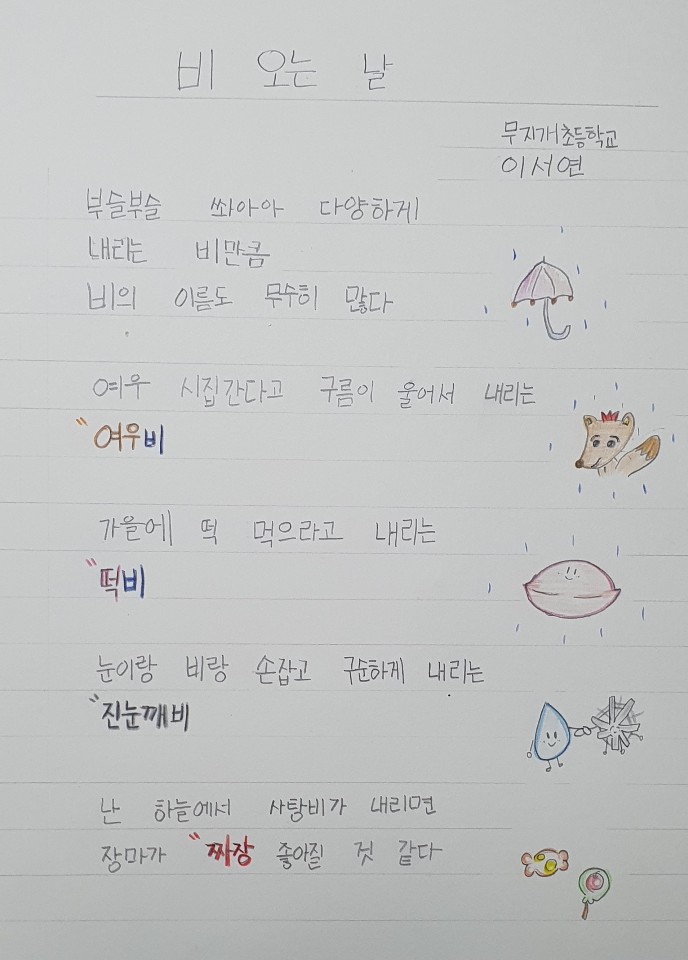 비 오는 날
무지개초등학교
이서연
부슬부슬 쏴아아 다양하게
내리는 비만큼
비의 이름도 무수히 많다
여우 시집간다고 구름이 울어서 내리는
"여우비
가을에 떡 먹으라고 내리는
"떡비
눈이랑 비랑 손잡고 구순하게 내리는
"진눈깨비
난 하늘에서 사탕비가 내리면
장마가 "짜장 좋아질 것 같다